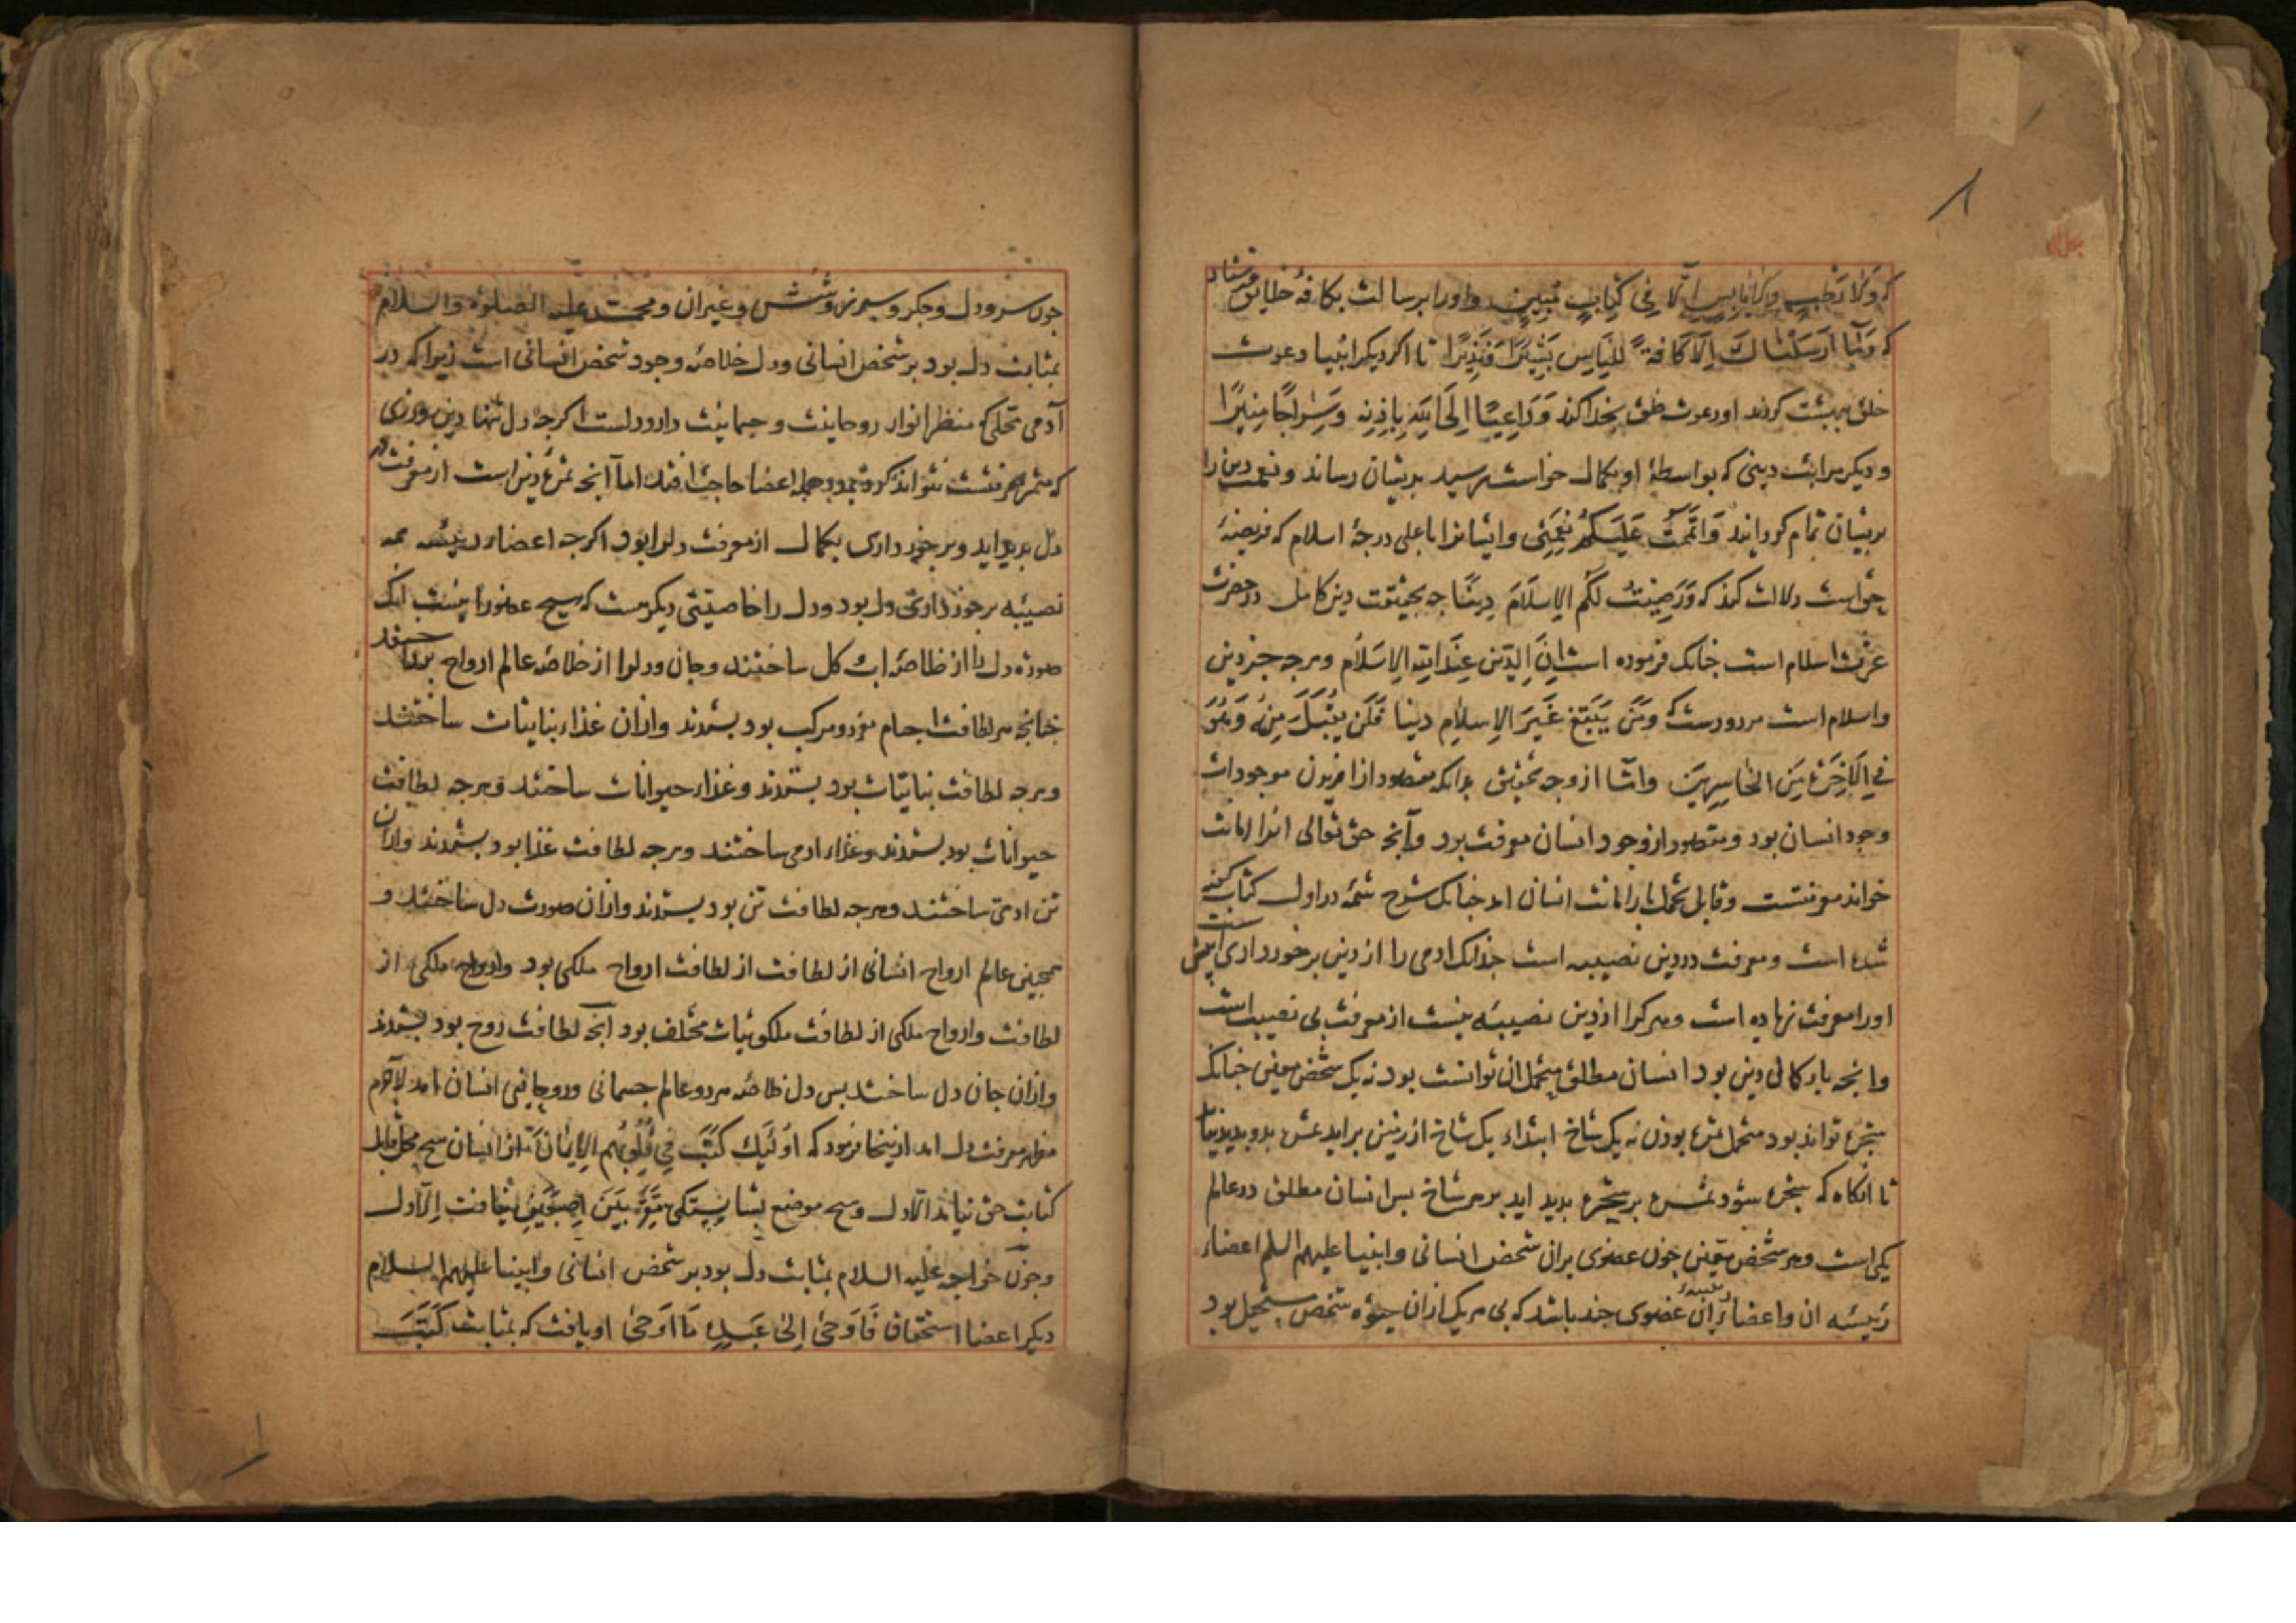 که ولا رطب ولا یابس الا فی کتاب مبین و او را برسالت بکافهٔ خلایق فرستاد
که وَمَا اَرسَلنَاکَ اِلاّ کَافةً لِلنّاسِ بَشِیرًا وَنَذِیرًا تا اکر دیکر انبیا دعوت
خلق ببهشت کردند او دعوت خلق بخدا کند وَدَاعِیًا اِلَی اللهِ بِاِذنِه وَسِرَاجًا مُنِیرًا
و دیکر مراتب دینی که بواسطهٔ او بکمال خواست رسید بدیشان رساند و نعمت دین را
بریشان تمام کرداند وَاَتمَمتُ عَلَیکُم نِعمَتِی و ایشانرا باعلی درجهٔ اسلام که فریضهٔ
حق است دلالت کند که وَرَضِیتُ لَکُمُ الاِسلَامَ دِینًا چه بحقیقت دین کامل در حضرت
عزت اسلام است چنانک فرموده است اِنَّ الدِّینَ عِندَ اللهِ الاِسلَام و هرچه جز دین
و اسلام است مردودست که وَمَن یَبتَغِ غَیرَ الاِسلَامِ دِینا فَلَن یُقبَلَ مِنهُ وَهُوَ
فِی الآخِرَةِ مِنَ الخَاسِرِینَ و اما از وجه تحقیق بدانکه مقصود از افریدن موجودات
وجود انسان بود و مقصود از وجود انسان معرفت بود و آنچه حق تعالی انرا امانت
خواند معرفتست و قابل تحمل بار امانت انسان امد چنانک شرح شمهٔ در اول کتاب گفته
شده است و معرفت در دین تعبیه است چندانک ادمی را از دین برخورداری بیش است
او را معرفت زیاده است و هر کرا از دین نصیبه نیست از معرفت بی نصیب است
و انچه بار کمال دین بود انسان مطلق متحمل ان توانست بود نه یک شخص معین چنانک
شجره تواند بود متحمل ثمره بودن نه یک شاخ ابتداء یک شاخ از زمین براید ثمره بدو پدید نیاید
تا انکاه که شجره شود ثمره بر شجره پدید اید بر هر شاخ پس انسان مطلق در عالم
یکی است و هر شخص معین چون عضوی بران شخص انسانی و انبیا علیهم السلم اعضاء
رئیسه ان و اعضاء رئیسهٔ ان عضوی چند باشد که بی هر یک ازان حیوة شخص مستحیل بود
چون سر و دل و جکر و سپرز و شش و غیر ان و محمد علیه الصلوة والسلام
بمثابت دل بود بر شخص انسانی و دل خلاصهٔ وجود شخص انسانی است زیرا که در
آدمی محلی که منظر انوار روحانیت و جسمانیت دارد دلست اکرچه دل تنها دین ورزی
که مثمر معرفتست نتواند کرد و بجمله اعضا حاجت افتد اما آنچه ثمرهٔ دین است از معرفت در
دل پدید اید و برخورداری بکمال از معرفت دلرا بود اکرچه اعضاء رئیسه همه
نصیبه برخورداری دل بود و دل را خاصیتی دیکر هست که هیچ عضو را نیست انک
صورة دل را از خلاصه اب و کل ساختند و جان دلرا از خلاصه عالم ارواح
چنانچه هر لطافت اجسام مفرد و مرکب بود بستدند و ازان غذاء نباتات ساختند
و هرچه لطافت نباتات بود بستدند و غذاء حیوانات ساختند و هرچه لطافت
حیوانات بود بستدند و غذاء ادمی ساختند و هرچه لطافت غذا بود بستدند و ازان
تن ادمی ساختند و هرچه لطافت تن بود بستدند و ازان صورت دل ساختند و
همچنین عالم ارواح انسانی از لطافت از لطافت ارواح ملکی بود و ارواح ملکی از
لطافت و ارواح ملکی از لطافت ملکوتیات مختلف بود آنچه لطافت روح بود بستدند
و ازان جان دل ساختند پس دل خلاصه هر دو عالم جسمانی و روحانی انسان امد لاجرم
مظهر معرفت دل امد ازینجا فرمود که اُولٰئِکَ کَتَبَ فِی قُلُوبِهِمُ الاِیمَانَ از انسان هیچ محل قابل
کتابت حق نیامد الا دل و هیچ موضع شایستکی بَینَ اِصبَعَینِ نیافت اِلّا دل
و چون خواجه علیه السلام بمثابت دل بود بر شخص انسانی و انبیا علیهم السلام
دیکر اعضا استحقاق فَاَوحٰی اِلٰی عَبدِهِ مَا اَوحٰی او یافت که بمثابت کَتَبَ